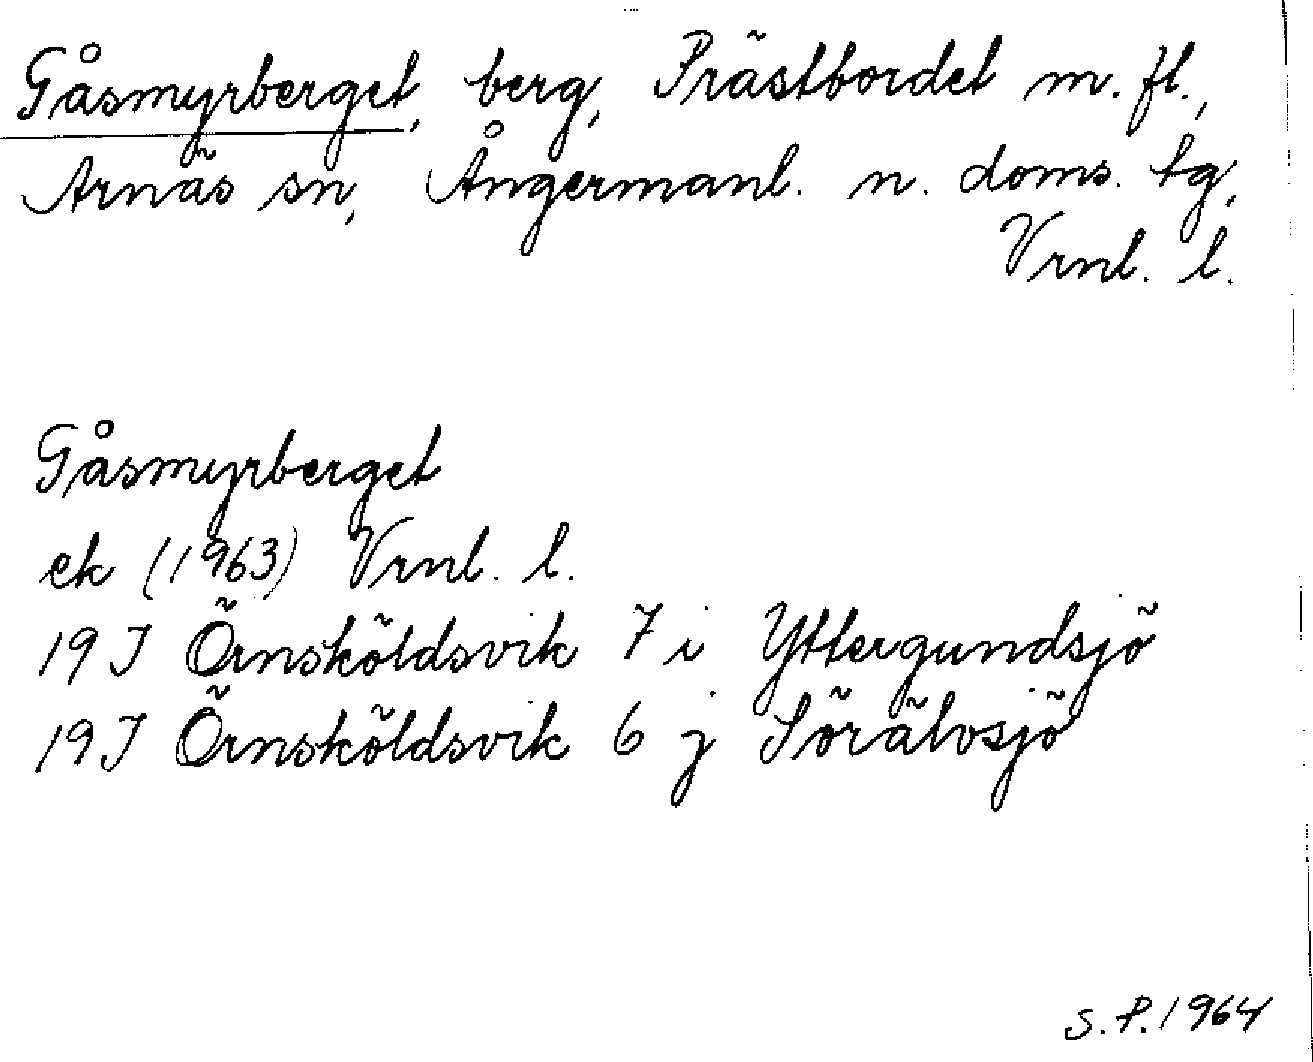 Gåsmyrberget, berg, Prästbordet m. fl.,
Arnäs sn, Ångermanl. n. doms. tg,
Vrnl. l.
Gåsmyrberget
ek (1963) Vrnl. l.
19 J Örnsköldsvik 7 i Yttergundsjö
19 J Örnsköldsvik 6 j Sörälvsjö
S. P. 1964